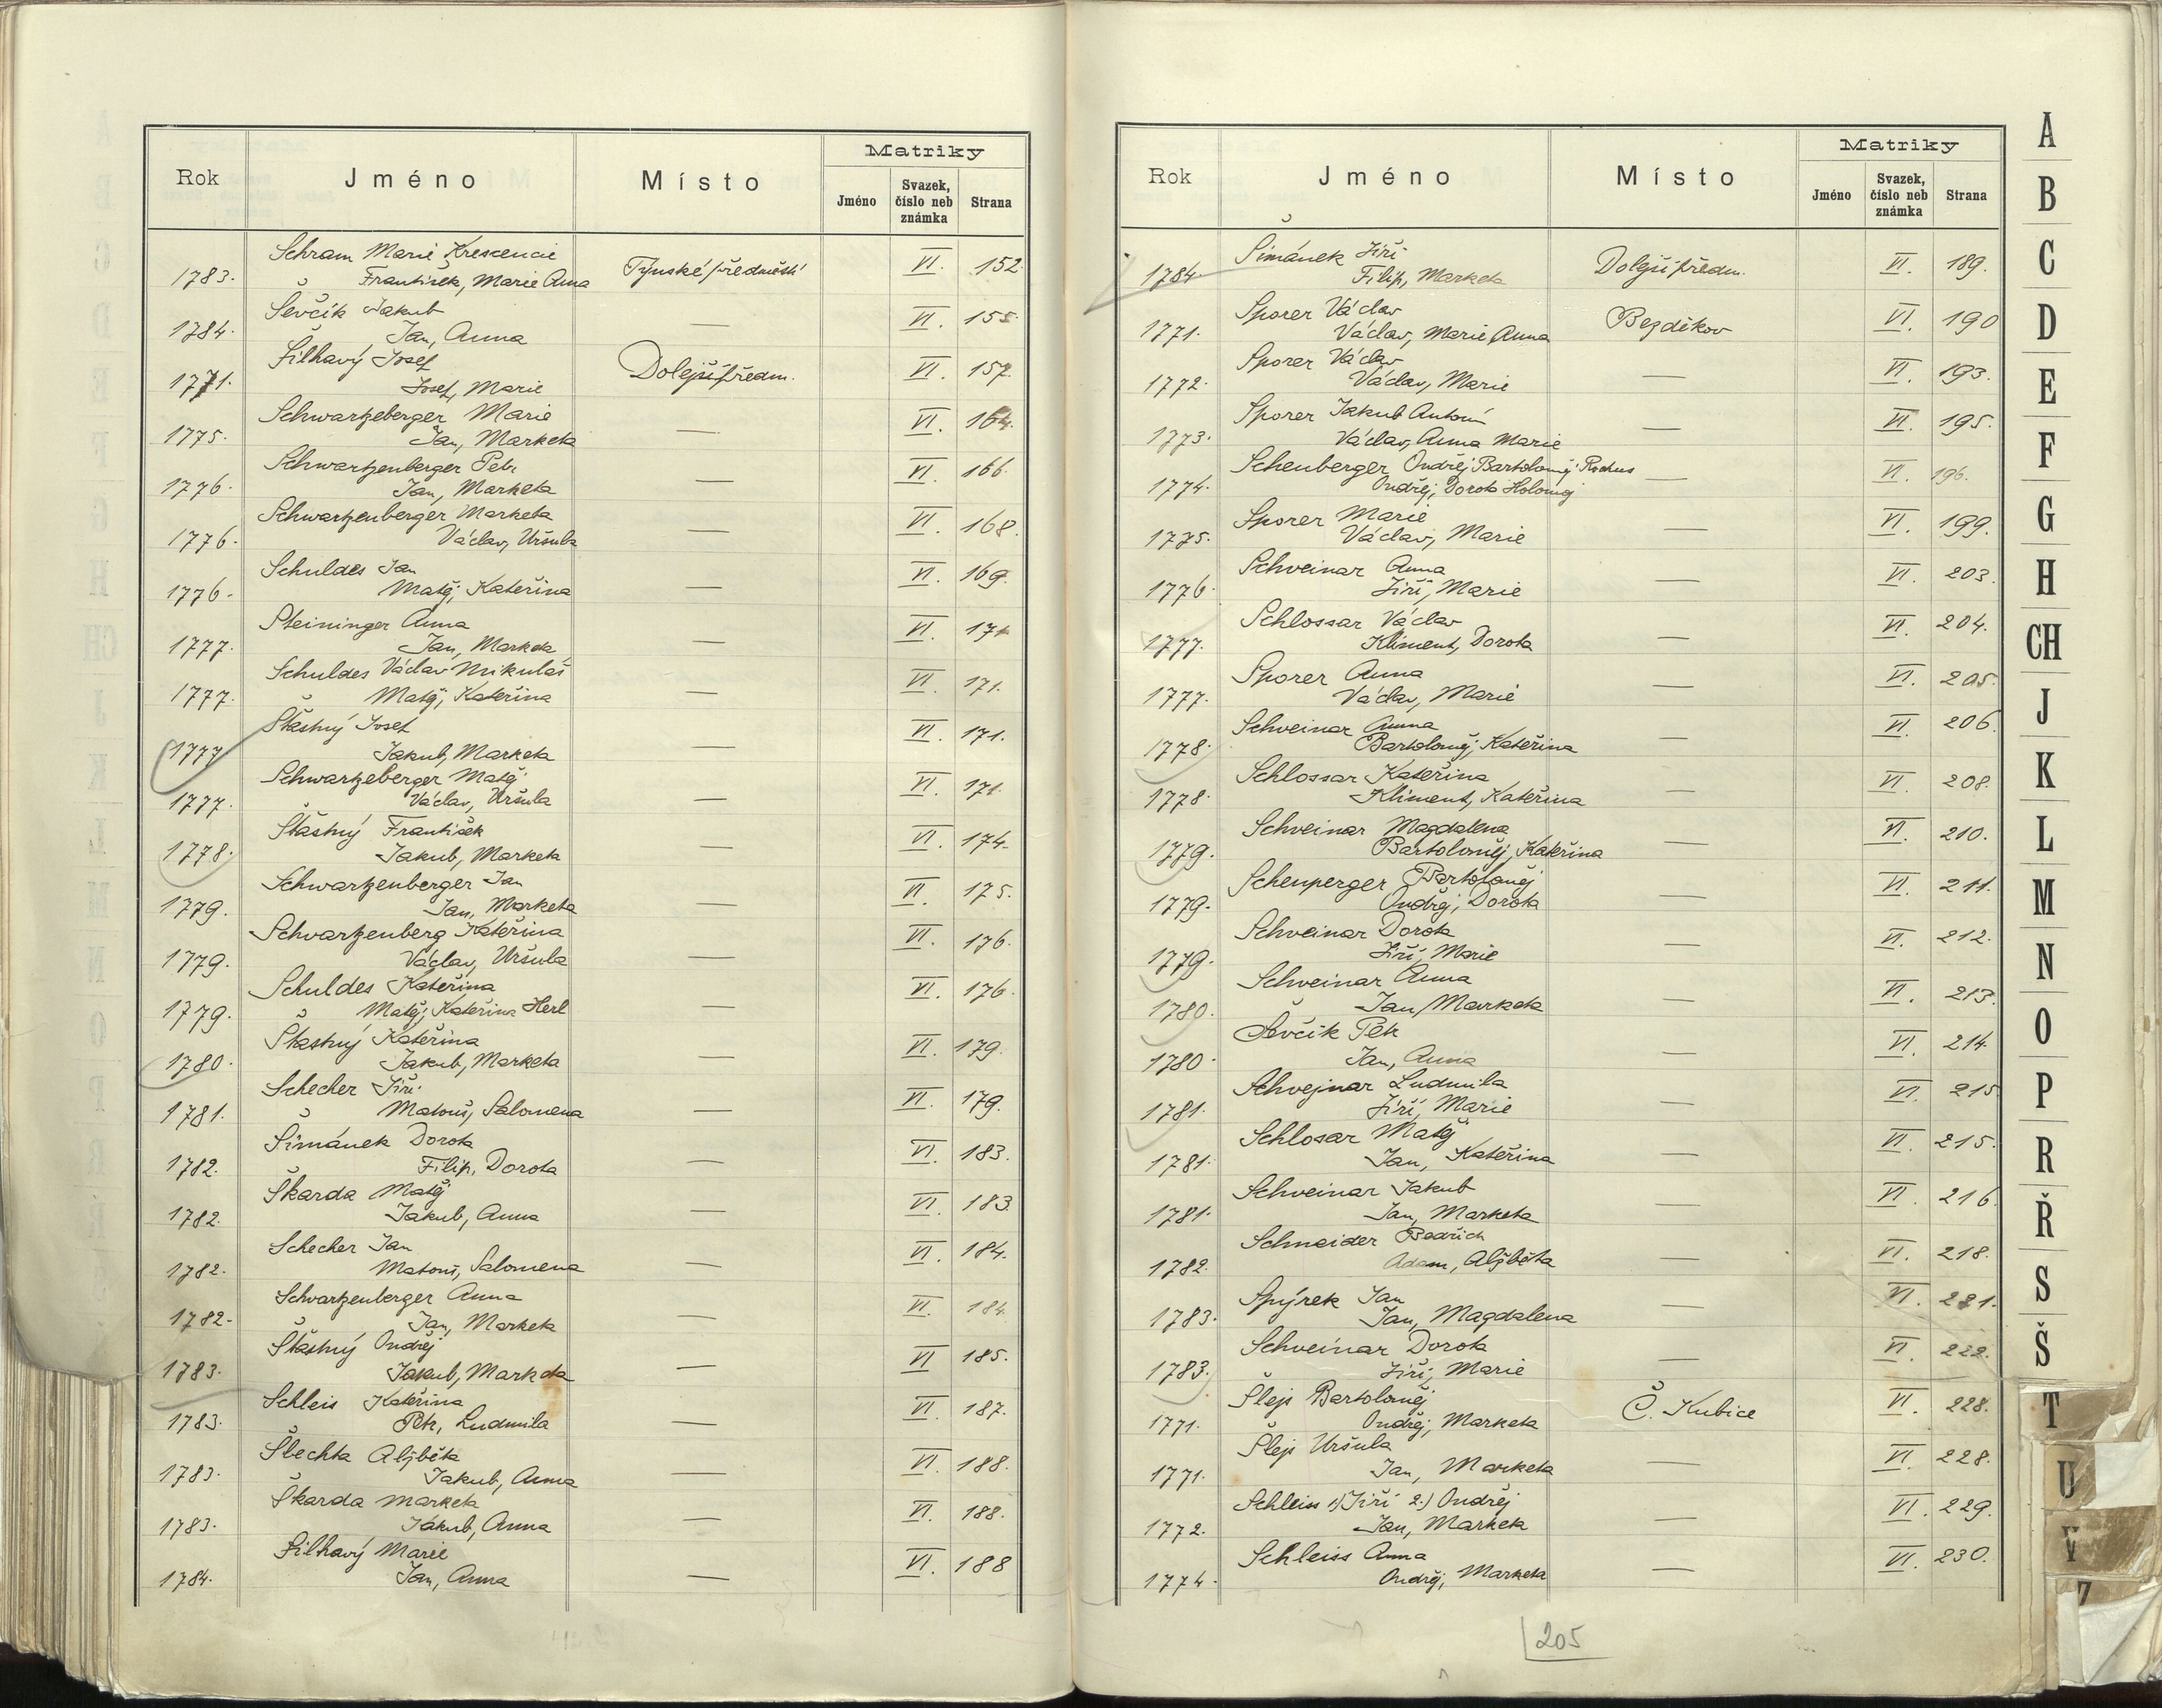 Rok Jméno Místo Matriky
Jméno Svazek, číslo neb známka Strana
Schram Marie Krescencie
1783. František, Marie Anna Týnské předměstí VI. 152.
Ševčík Jakub
1784. Jan, Anna — VI. 155.
Šilhavý Josef
1771. Josef, Marie Dolejší předm. VI. 157.
Schwartzeberger Marie
1775. Jan, Marketa — VI. 164.
Schwartzenberger Petr
1776. Jan, Marketa — VI. 166.
Schwartzenberger Marketa
1776. Václav, Uršula — VI. 168.
Schuldes Jan
1776. Matěj, Kateřina — VI. 169.
Steininger Anna
1777. Jan, Marketa — VI. 171.
Schuldes Václav Mikuláš
1777. Matěj, Kateřina — VI. 171.
Šťastný Josef
1777 Jakub, Marketa — VI. 171.
Schwartzeberger Matěj
1777. Václav, Uršula — VI. 171.
Šťastný František
1778. Jakub, Marketa — VI. 174.
Schwartzenberger Jan
1779. Jan, Marketa — VI. 175.
Schvartzenberg Kateřina
1779. Václav, Uršula — VI. 176.
Schuldes Kateřina
1779. Matěj, Kateřina Herl — VI. 176.
Šťastný Kateřina
1780. Jakub, Marketa — VI. 179.
Schecher Jiří
1781. Matouš, Salomena — VI. 179.
Šimánek Dorota
1782. Filip, Dorota — VI. 183.
Škarda Matěj
1782. Jakub, Anna — VI. 183
Schecher Jan
1782. Matouš, Salomena — VI. 184.
Schwartzenberger Anna
1782. Jan, Marketa — VI. 184.
Šťastný Ondřej
1783. Jakub, Marketa — VI 185.
Schleis Kateřina
1783. Petr, Ludmila — VI. 187.
Šlechta Alžběta
1783. Jakub, Anna — VI. 188.
Škarda Marketa
1783. Jakub, Anna — VI. 188.
Šilhavý Marie
1784. Jan, Anna — VI. 188
Rok Jméno Místo Matriky
Jméno Svazek, číslo neb známka Strana
Šimánek Jiří
1784 Filip, Marketa Dolejší předm. VI. 189.
Sporer Václav
1771. Václav, Marie Anna Bezděkov VI. 190
Sporer Václav
1772. Václav, Marie — VI. 193.
Sporer Jakub Antonín
1773. Václav, Anna Marie — VI. 195.
Schenberger Ondřej Bartoloměj Rochus
1774. Ondřej, Dorota Holoměj — VI. 196.
Sporer Marie
1775. Václav, Marie — VI. 199.
Schveinar Anna
1776. Jiří, Marie — VI. 203.
Schlossar Václav
1777. Kliment, Dorota — VI. 204.
Sporer Anna
1777. Václav, Marie — VI. 205.
Schveinar Anna
1778. Bartoloměj, Kateřina — VI. 206.
Schlossar Kateřina
1778. Kliment, Kateřina — VI. 208.
Schveinar Magdalena
1779. Bartoloměj, Kateřina — VI. 210.
Schenperger Bartoloměj
1779. Ondřej, Dorota — VI. 211.
Schveinar Dorota
1779. Jiří, Marie — VI. 212.
Schveinar Anna
1780. Jan, Marketa — VI. 213.
Ševčík Petr
1780. Jan, Anna — VI. 214
Schvejnar Ludmila
1781. Jiří, Marie — VI. 215
Schlosar Matěj
1781. Jan, Kateřina — VI. 215.
Schveinar Jakub
1781. Jan, Marketa — VI. 216
Schneider Bedřich
1782. Adam, Alžběta — VI. 218.
Spýrek Jan
1783. Jan, Magdalena — VI. 221.
Schveinar Dorota
1783. Jiří, Marie — VI. 222.
Šlejs Bartoloměj
1771. Ondřej, Marketa Č. Kubice VI. 228.
Šlejs Uršula
1771. Jan, Marketa — VI. 228.
Schleiss 1.) Jiří 2.) Ondřej
1772. Jan, Marketa — VI. 229.
Schleiss Anna
1774. Ondřej, Marketa — VI. 230.
205
A
B
C
D
E
F
G
H
CH
J
K
L
M
N
O
P
R
Ř
S
Š
T
U
V
Z